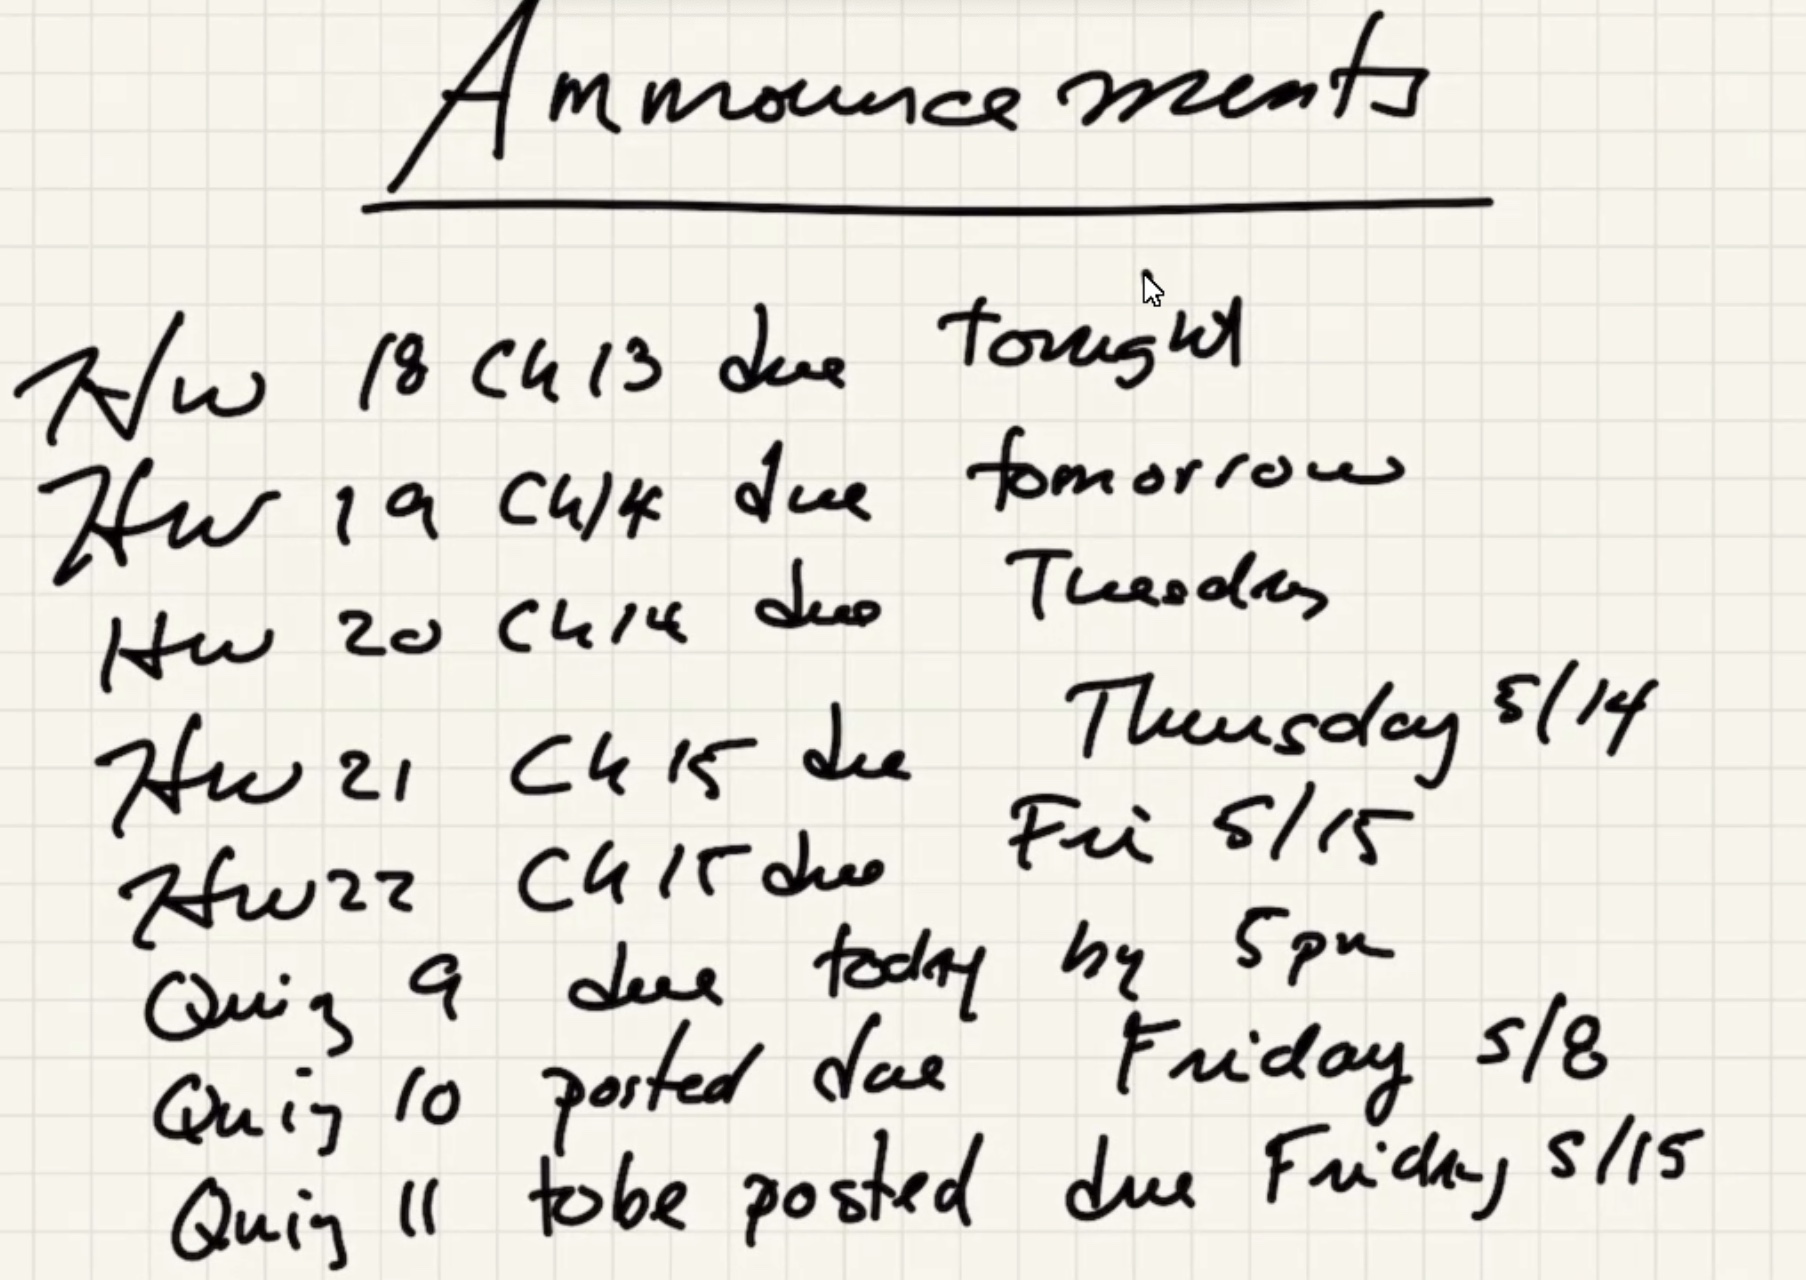 Announcements
HW 18 Ch 13 due tonight
HW 19 Ch 14 due tomorrow
HW 20 Ch 14 due Tuesday
HW 21 Ch 15 due Thursday 5/14
HW 22 Ch 15 due Fri 5/15
Quiz 9 due today by 5pm
Quiz 10 posted due Friday 5/8
Quiz 11 to be posted due Friday 5/15